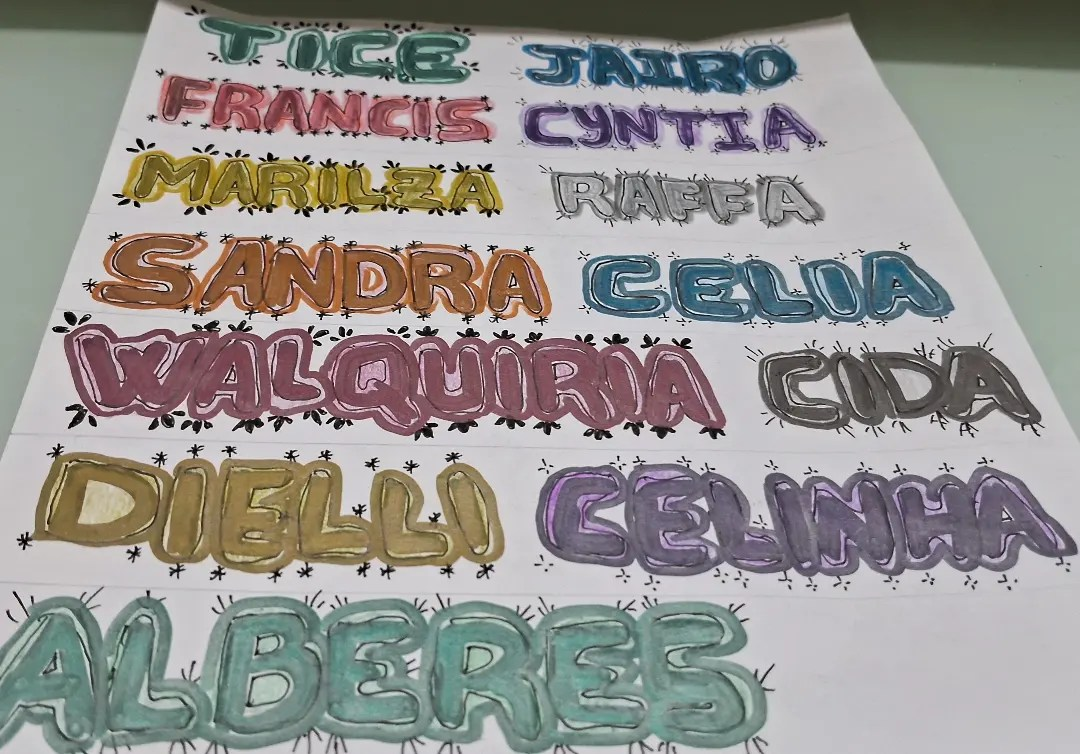 TICE JAIRO
FRANCIS CYNTIA
MARILZA RAFFA
SANDRA CELIA
WALQUIRIA CIDA
DIELLI CELINHA
ALBERES